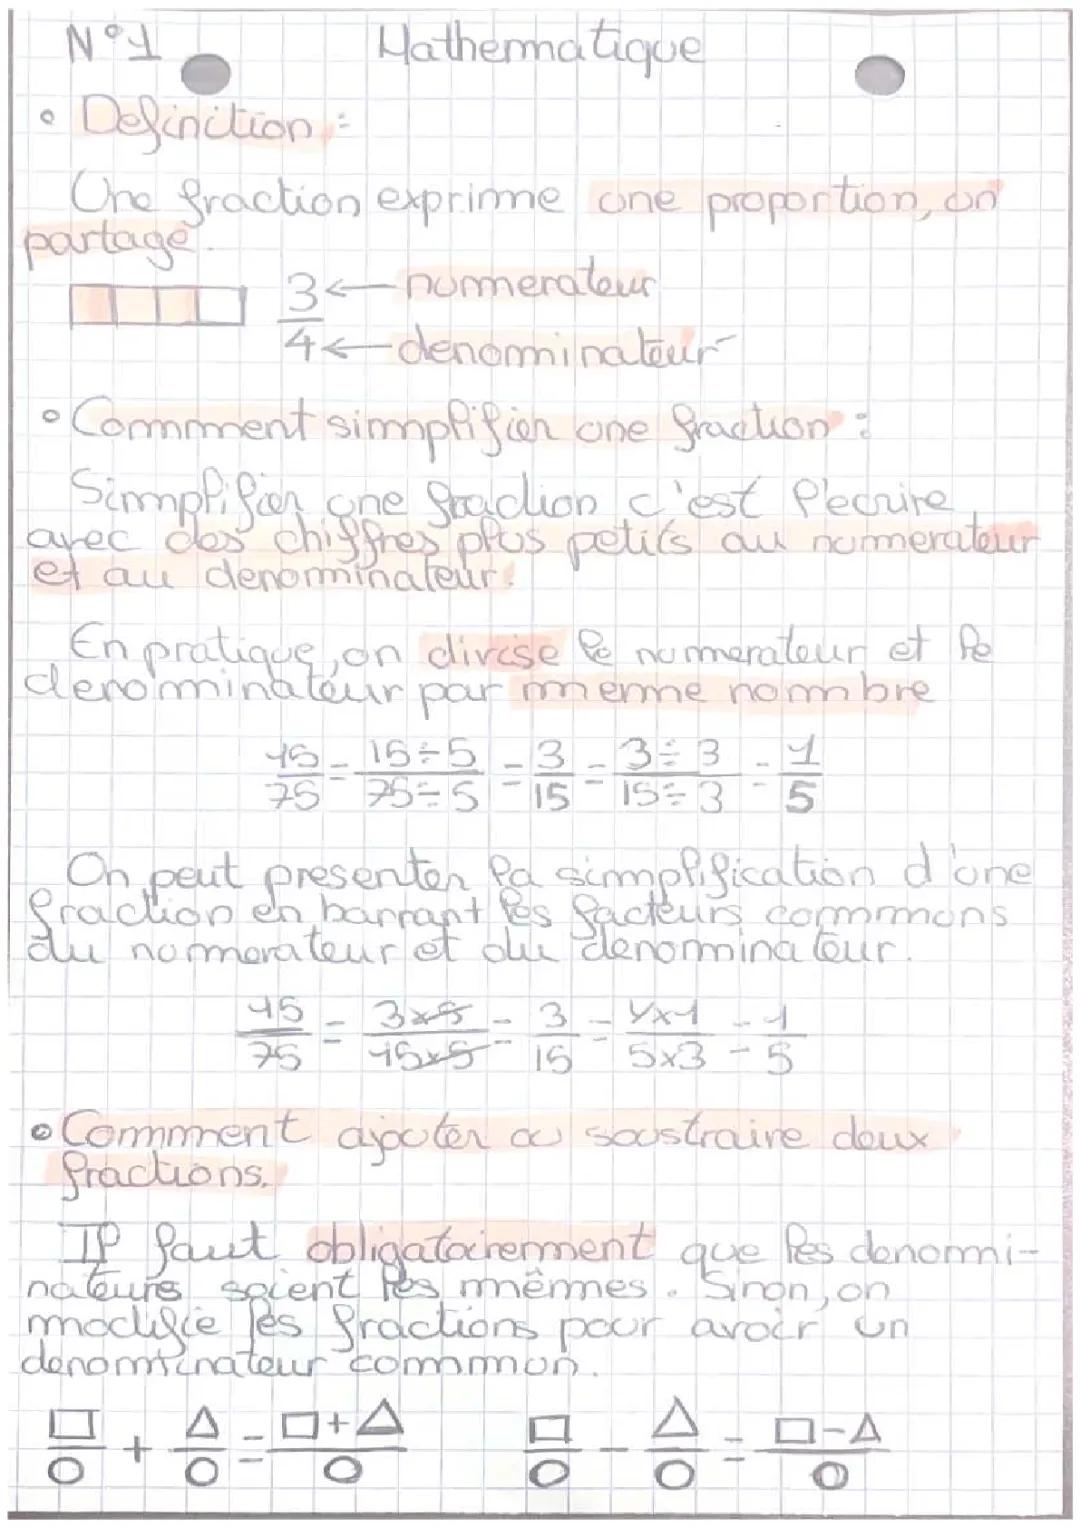 N°1 Mathematique
• Definition :
Une fraction exprime une proportion, un
partage.
3 ← numerateur
4 ← denominateur
• Comment simplifier une fraction :
Simplifier une fraction c'est l'ecrire
avec des chiffres plus petits au numerateur
et au denominateur.
En pratique, on divise le numerateur et le
denominateur par meme nombre
15/75 = 15÷5/75÷5 = 3/15 = 3÷3/15÷3 = 1/5
On peut presenter la simplification d'une
fraction en barrant les facteurs communs
du numerateur et du denominateur.
15/75 = 3×5/15×5 = 3/15 = ×1/5×3 = 1/5
• Comment ajouter ou soustraire deux
fractions.
Il faut obligatoirement que les denomi-
nateurs soient les mêmes. Sinon, on
modifie les fractions pour avoir un
denominateur commun.
□/○ + △/○ = □+△/○ □/○ - △/○ = □-△/○